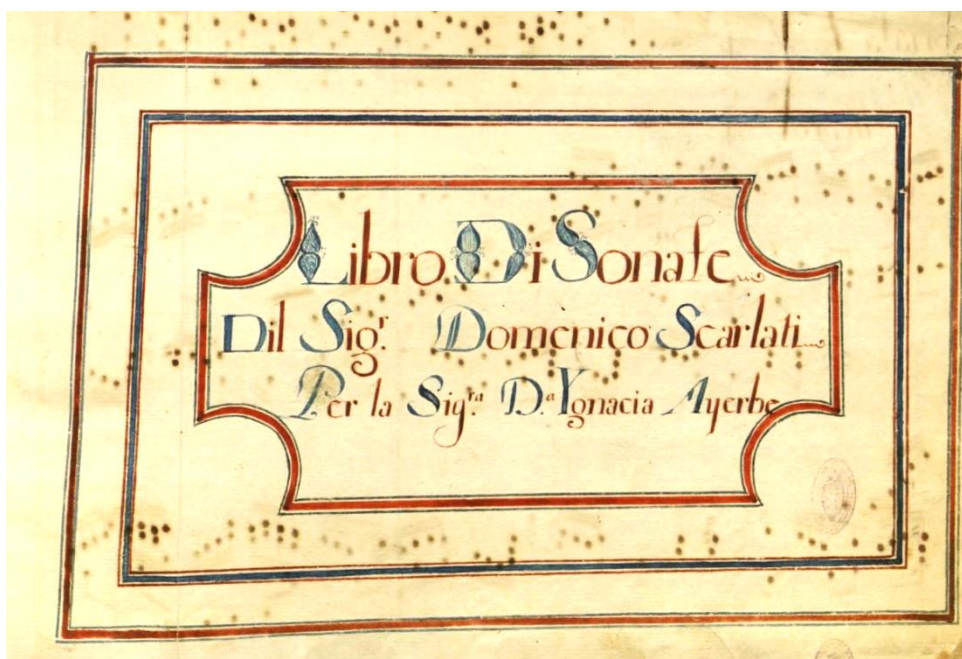 Libro Di Sonate
Dil Sigr. Domenico Scarlati
Per la Sigra. Da. Ygnacia Ayerbe